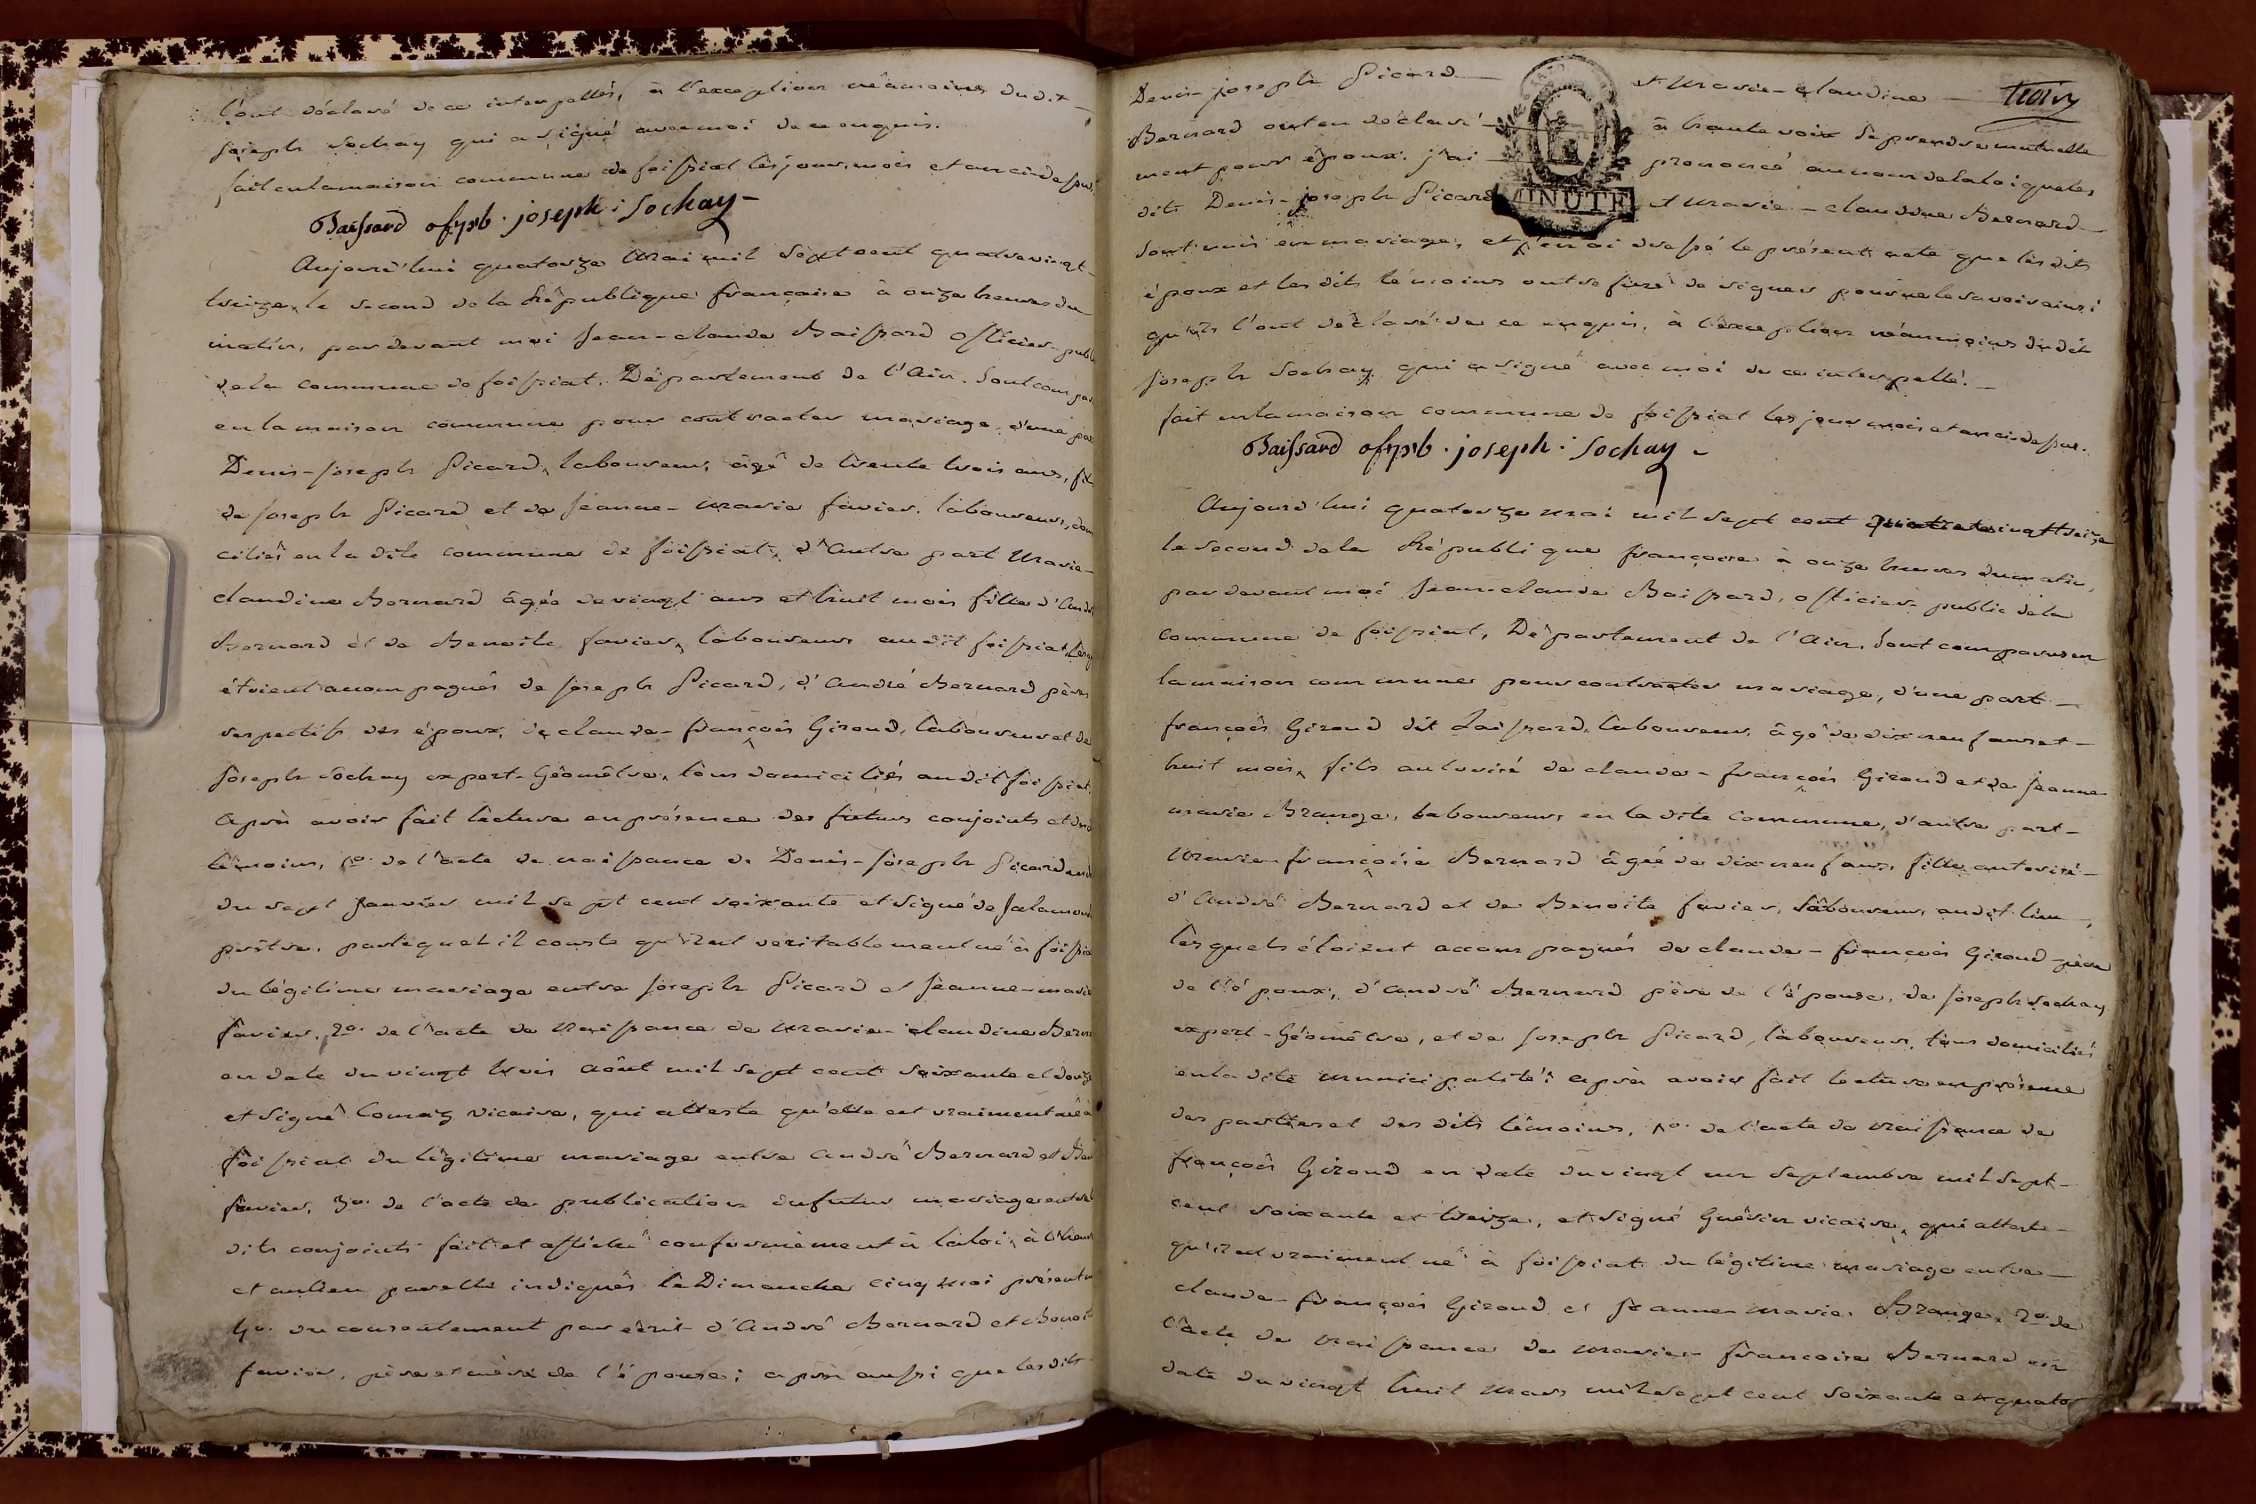 l'ont déclaré de ce interpellés, à l'exception néamoins dudit
joseph Sochay qui a signé avec moi de ce enquis.
fait en la maison commune de foissiat les jour, mois et an ci dessus.
Baissard of. pb. joseph : Sochay
Aujourd'hui quatorze Mai mil sept cent quatre vingt
treize, le second de la République françaire à onze heures du
matin, pardevant moi Jean-claude Baissard Officier publ
de la commune de foissiat, Département de l'Ain. Sont compar
en la maison commune pour contracter mariage, d'une par
Denis-joseph Picard, laboureur, âgé de trente trois ans, fils
de joseph Picard et de jeanne-marie favier, laboureurs, dom
ciliés en la dite commune de foissiat, d'autre part Marie-
claudine Bernard âgée de vingt ans et huit mois fille d'André
Bernard et de Benoite favier, laboureurs audit foissiat, lesq
étoient accompagnés de joseph Picard, d'André Bernard pères
respectifs des époux, de claude-françois Giroud, laboureur et de
joseph Sochay expert-Géomètre, tous domiciliés audit foissiat.
Après avoir fait lecture en présence des futurs conjoints et des
témoins, 1o. de l'acte de naissance de Denis-joseph Picard en d
du sept janvier mil sept cent soixante et signé de Jalamond
prêtre, par lequel il conste qu'il est veritablement né à foissia
du légitime mariage entre joseph Picard et jeanne-marie
favier, 2o. de l'acte de Naissance de marie-claudine Bern
en date du vingt trois août mil sept cent soixante et douze
et signé Comaz vicaire, qui atteste qu'elle est vraiment née à
foissiat du légitime mariage entre André Bernard et Ben
favier, 3o. de l'acte de publication du futur mariage entre l
dits conjoints fait et affiché conformément à la loi, à l'heure
et au lieu par elle indiqués le Dimanche cinq Mai présent m
4o. du consentement par écrit d'André Bernard et Benoit
favier, père et mère de l'épouse ; après aussi que lesdits
trois
Denis-joseph Picard et Marie-claudine
Bernard ont eu déclaré à haute voix se prendre mutuelle
ment pour époux. j'ai prononcé au nom de la loi que les
dits Denis-joseph Picard et Marie-claudine Bernard
MINUTE
sont unis en mariage, et j'en ai dressé le présent acte que les dits
époux et les dits témoins ont refusé de signer pour ne le savoir ainsi
qu'ils l'ont déclaré de ce enquis, à l'exception néanmoins dudit
joseph Sochay qui a signé avec moi de ce interpellé.
fait en la maison commune de foissiat les jour mois et an ci-dessus.
Baissard of. pb. joseph : Sochay
Aujourd'hui quatorze mai mil sept cent quatre vingt treize
le second de la République françoise à onze heures du matin,
par devant moi Jean claude Baissard, officier public de la
commune de foissiat, Département de l'Ain, Sont comparus en
la maison commune pour contracter mariage, d'une part
françois Giroud dit Laissard, laboureur, âgé de dix neuf ans et
huit mois, fils autorisé de claude-françois Giroud et de jeanne
marie Brange, laboureurs en la dite commune, d'autre part
Marie françoise Bernard âgée de dix neuf ans, fille autorisé
d'André Bernard et de Benoite favier, laboureurs, audit lieu,
lesquels étoient accompagnés de claude-françois Giroud père
de l'époux, d'André Bernard père de l'épouse, de joseph Sochay
expert-Géomètre, et de joseph Picard, laboureur, tous domiciliés
en la dite municipalité : après avoir fait lecture en présence
des parties et des dits témoins, 1o. de l'acte de naissance de
françois Giroud en date du vingt un septembre mil sept
cent soixante et treize, et signé Guérin vicaire, qui atteste
qu'il est vraiment né à foissiat du légitime mariage entre
claude-françois Giroud et jeanne Marie Brange, 2o. de
l'acte de naissance de marie-françoise Bernard en
date du vingt huit mars mil sept cent soixante et quato